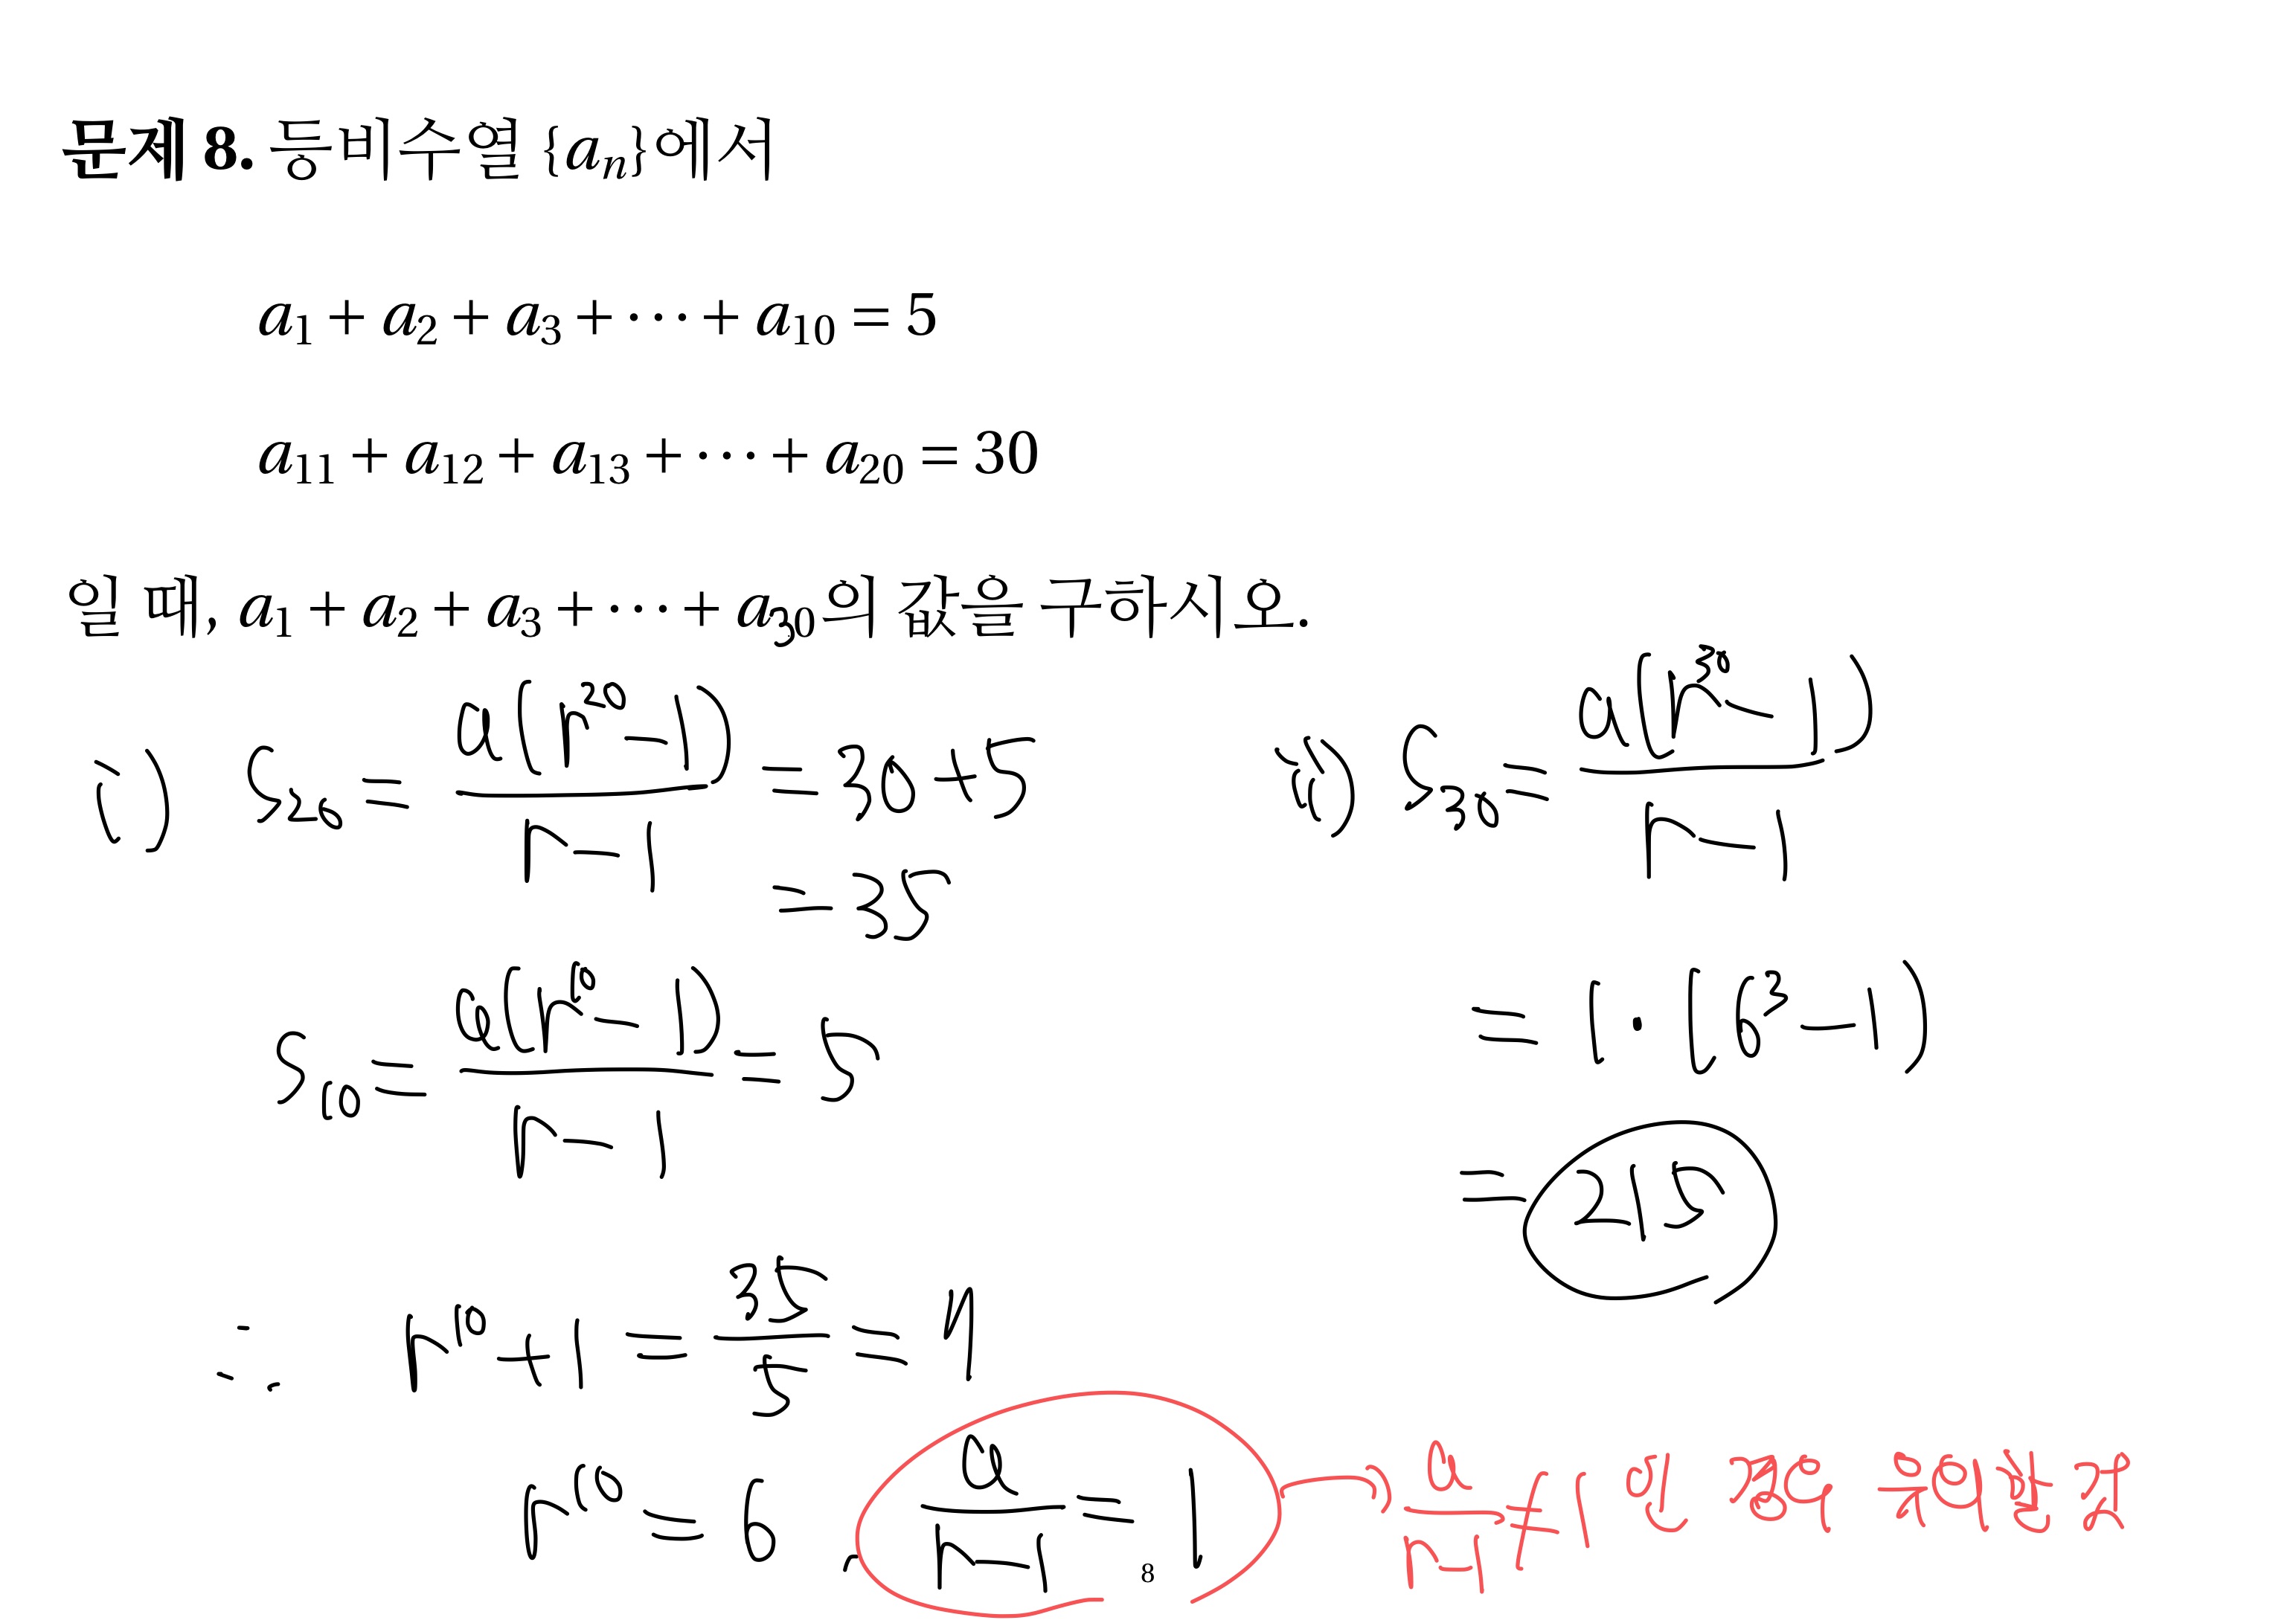 문제 8. 등비수열 {aₙ}에서
a₁ + a₂ + a₃ + ⋯ + a₁₀ = 5
a₁₁ + a₁₂ + a₁₃ + ⋯ + a₂₀ = 30
일 때, a₁ + a₂ + a₃ + ⋯ + a₃₀의 값을 구하시오.
i) S₂₀ = a(r²⁰ - 1) / (r - 1) = 30 + 5
= 35
S₁₀ = a(r¹⁰ - 1) / (r - 1) = 5
∴ r¹⁰ + 1 = 35/5 = 7
r¹⁰ = 6, a/(r-1) = 1
a/(r-1) ≠ 1 인 유의할 것
ii) S₃₀ = a(r³⁰ - 1) / (r - 1)
= 1 · (6³ - 1)
= 215
8